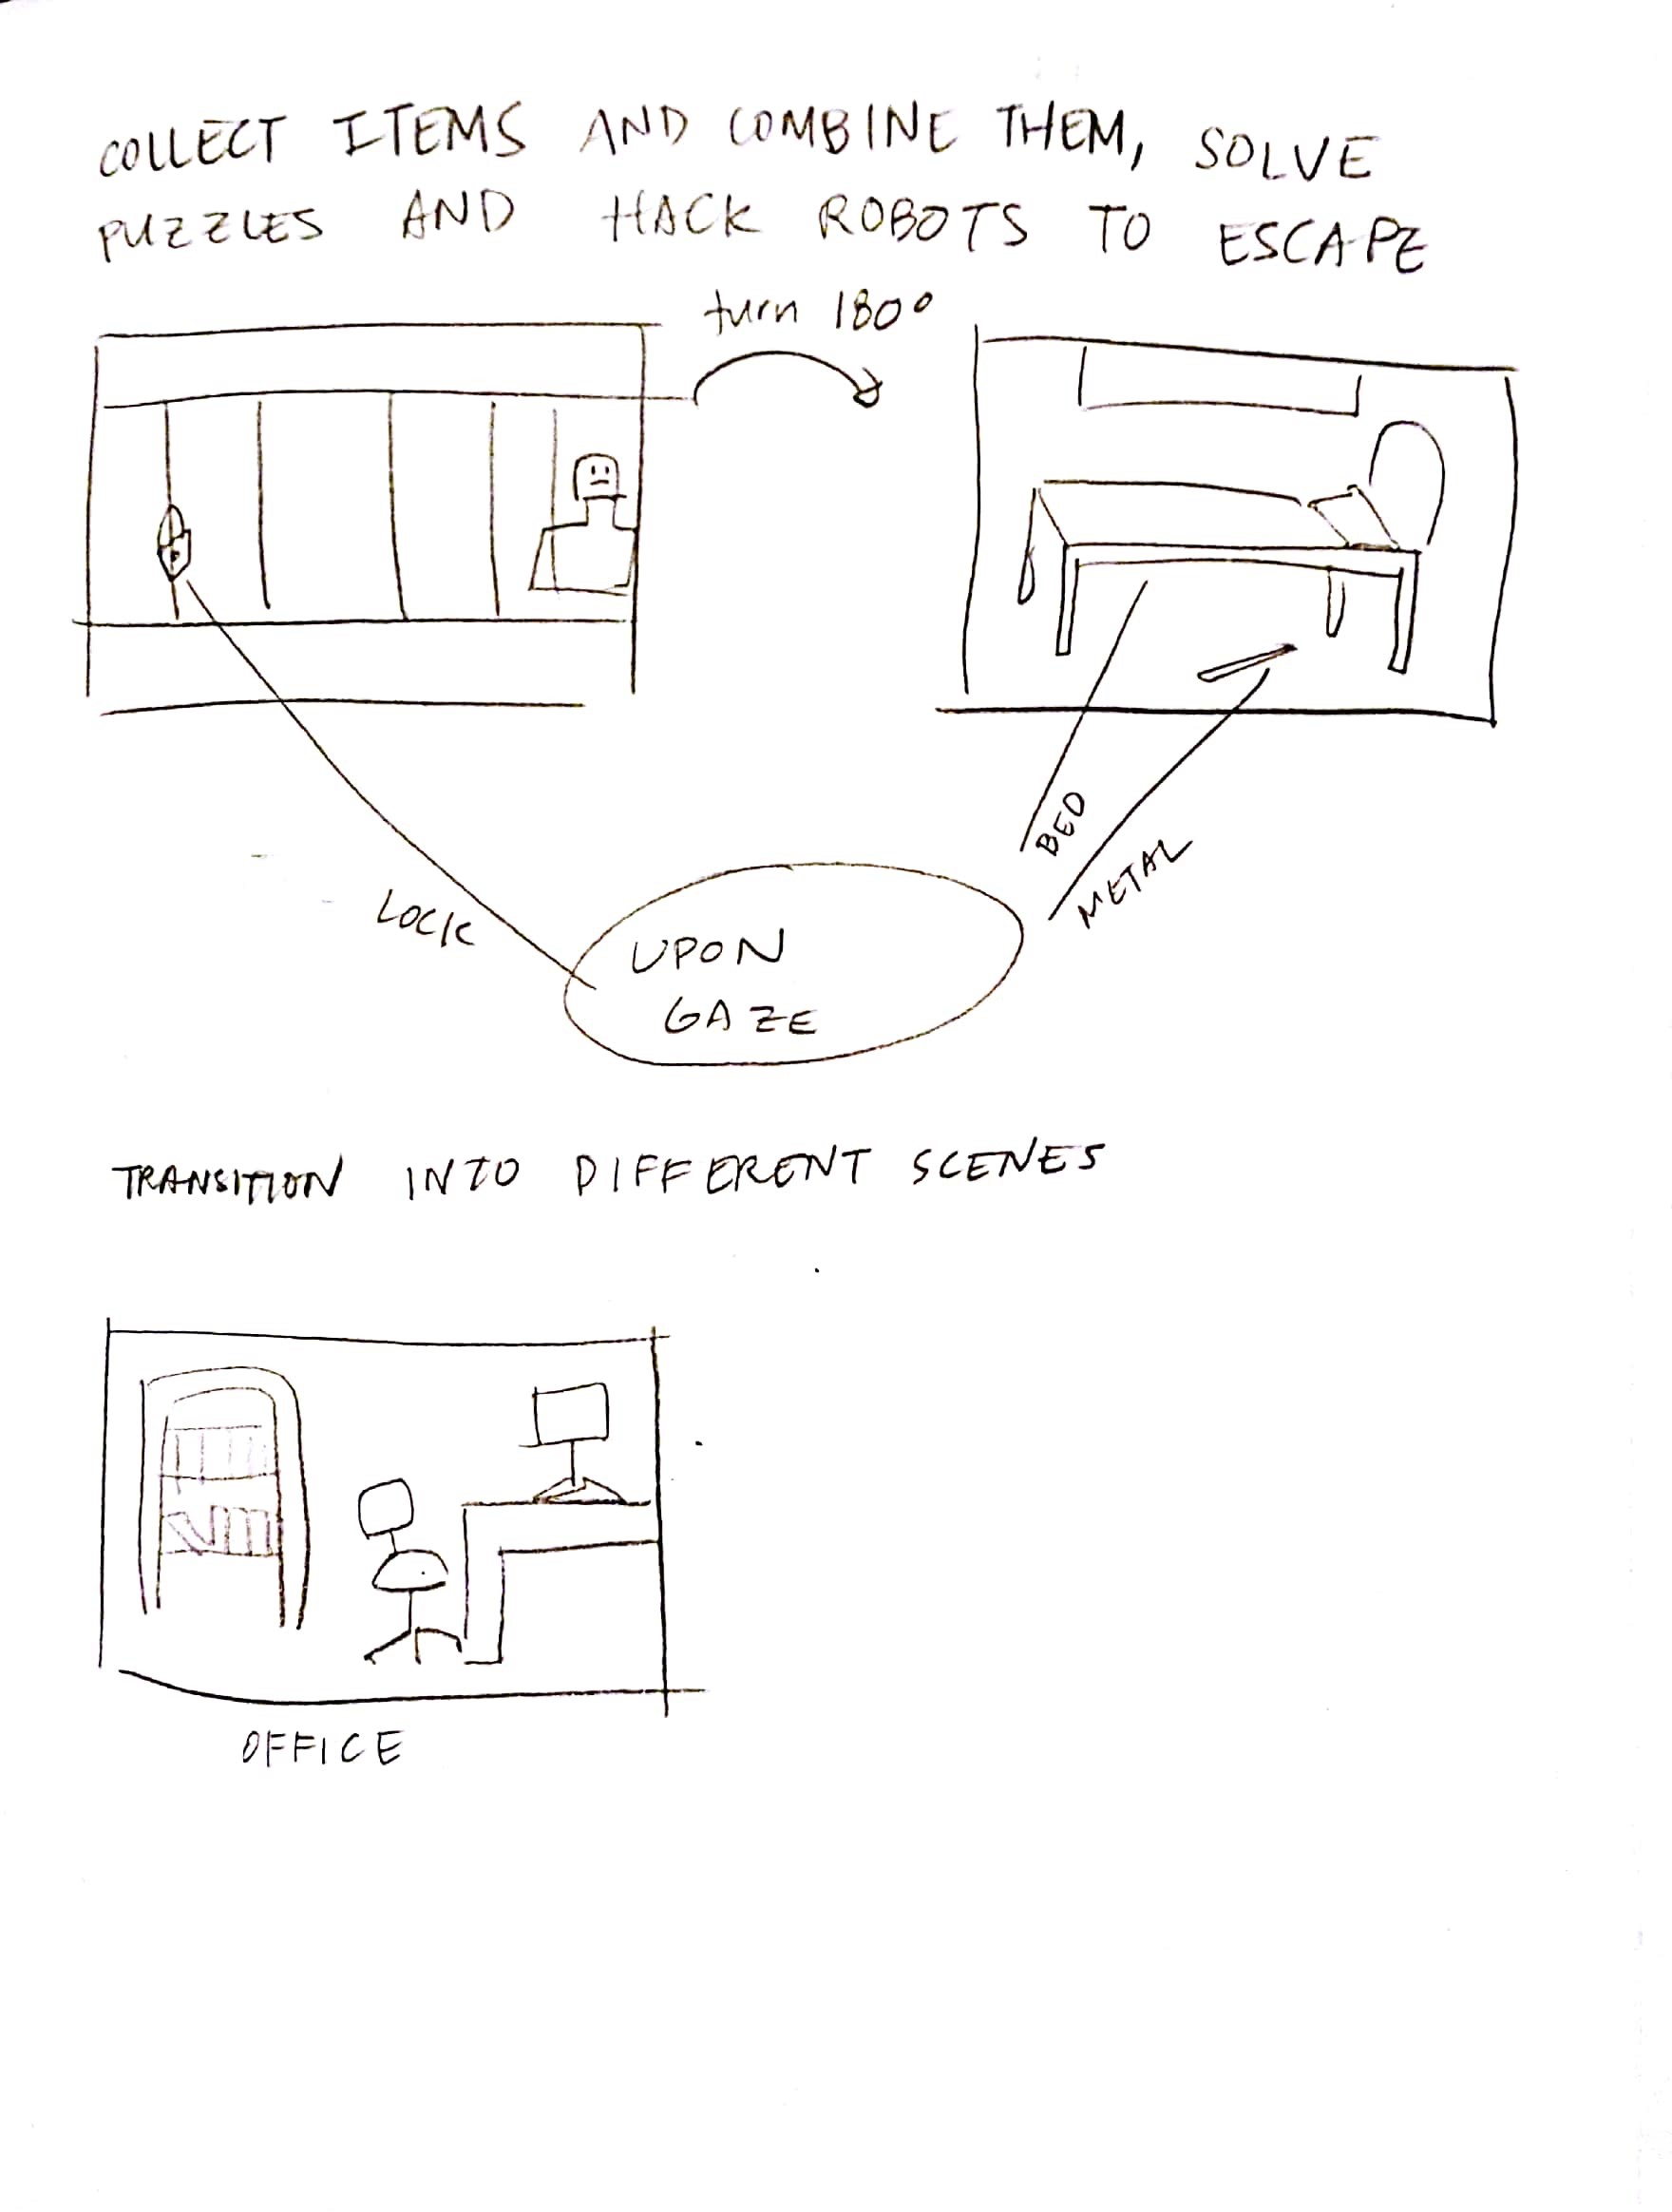 COLLECT ITEMS AND COMBINE THEM, SOLVE
PUZZLES AND HACK ROBOTS TO ESCAPE
turn 180°
BED
METAL
LOCK
UPON
GAZE
TRANSITION INTO DIFFERENT SCENES
OFFICE